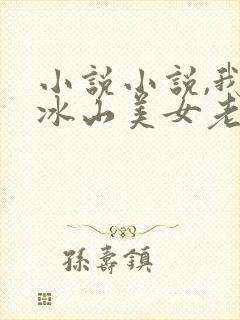 小說小說,我
冰山美女老
孫壽鎮